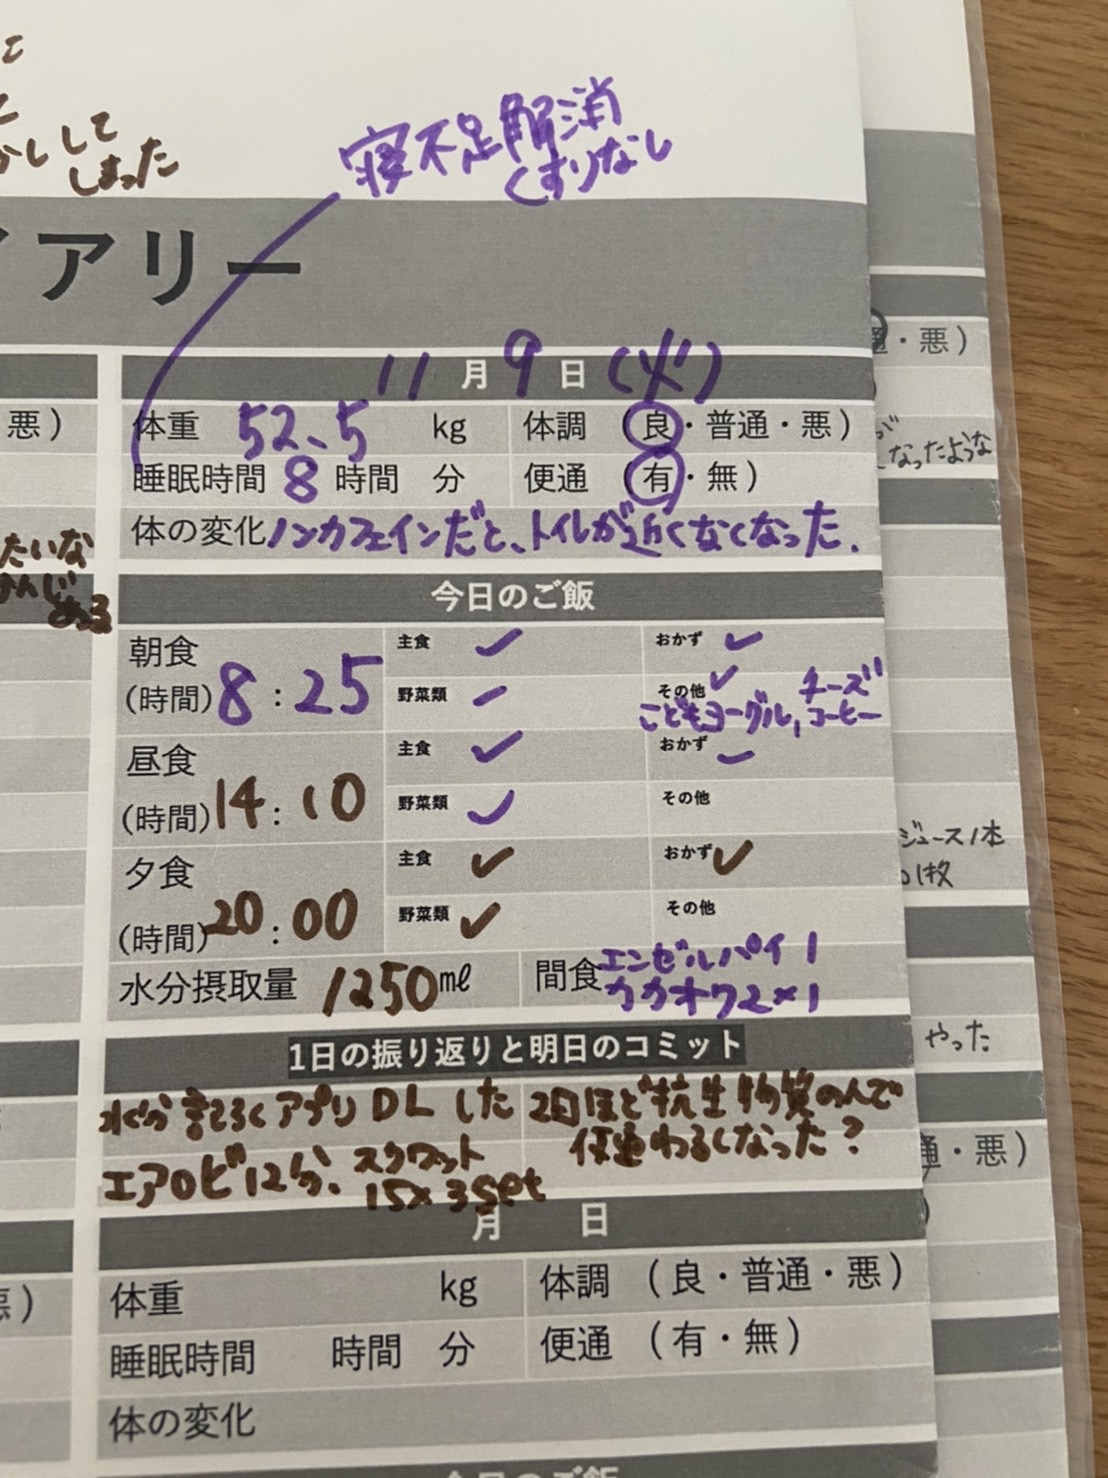 しして
しまった
寝不足解消
くすりなし
イアリー
11月9日(火)
体重 52.5 kg 体調 (良・普通・悪)
睡眠時間 8 時間 分 便通 (有・無)
体の変化 ノンカフェインだと、トイレが近くなくなった.
今日のご飯
朝食 主食 ✓ おかず ✓
(時間) 8:25 野菜類 − その他 ✓ チーズ
こどもヨーグル, コーヒー
昼食 主食 ✓ おかず −
(時間) 14:10 野菜類 ✓ その他
夕食 主食 ✓ おかず ✓
(時間) 20:00 野菜類 ✓ その他
水分摂取量 1250ml 間食 エンゼルパイ 1
カカオ72×1
1日の振り返りと明日のコミット
水分きろくアプリDLした 2日ほど抗生物質のんで
便通わるくなった?
エアロビ12分、スクワット
15×3set
月 日
体重 kg 体調 (良・普通・悪)
睡眠時間 時間 分 便通 (有・無)
体の変化
今日のご飯
悪)
たいな
かんじ
ある
悪)
・悪)
なったような
ジュース1本
1枚
やった
通・悪)